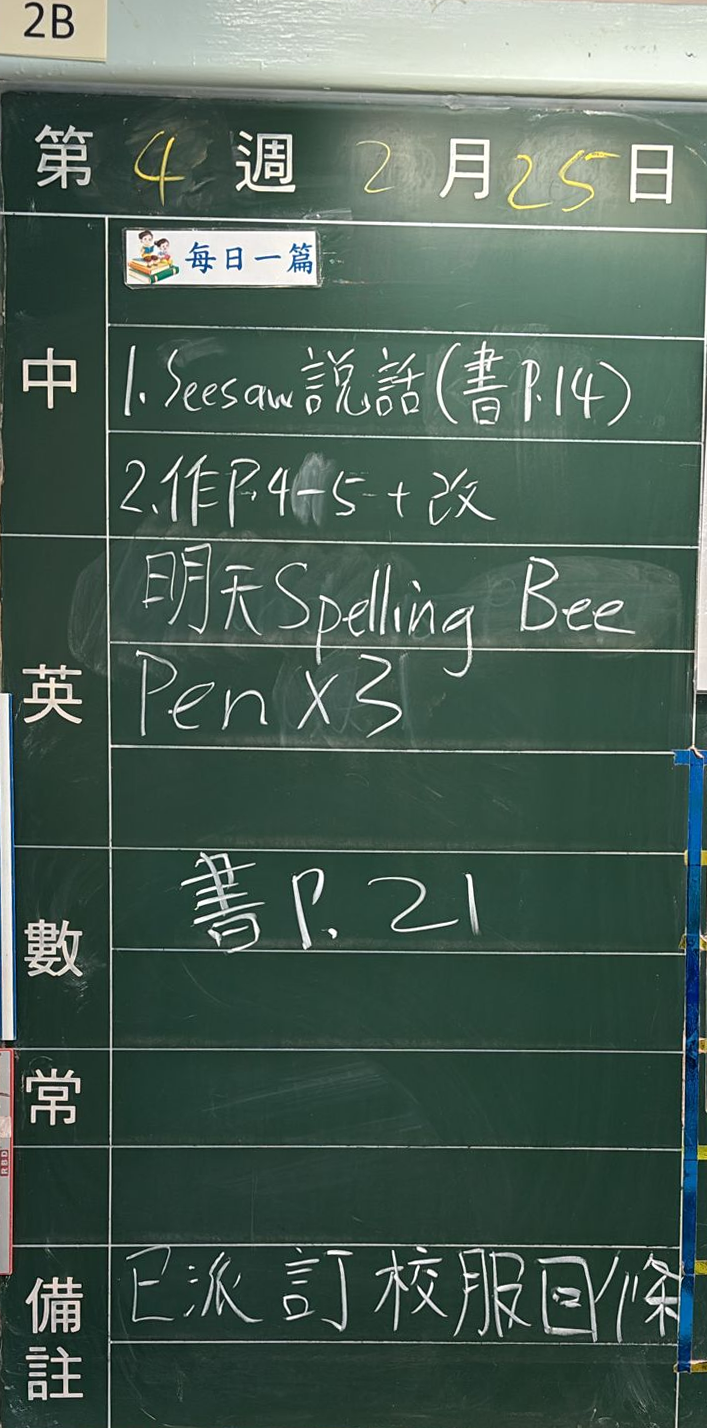 2B
第 4 週 2 月 25 日
每日一篇
中
1. Seesaw 說話 (書 P.14)
2. 作 P.4-5 + 改
英
明天 Spelling Bee
Pen x3
數
書 P. 21
常
備註
已派訂校服回條
RBD